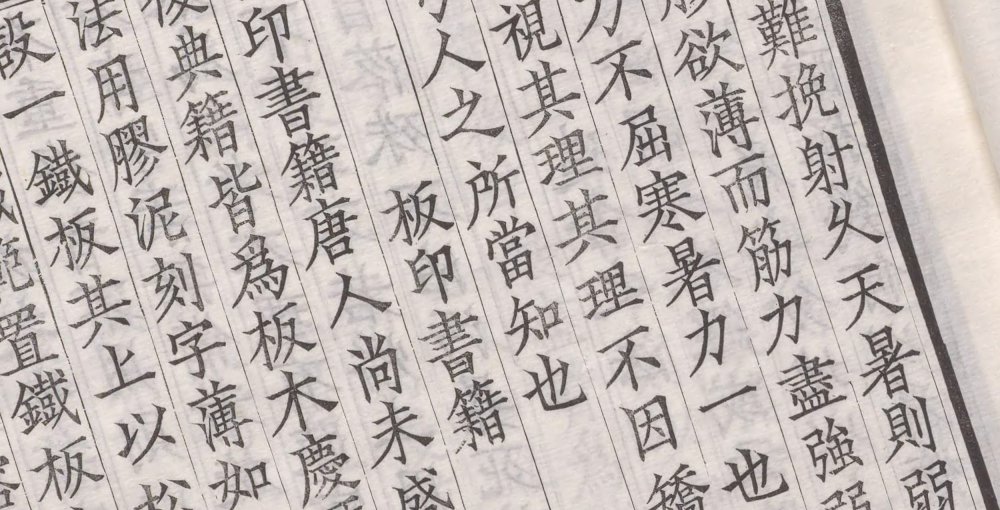 難挽射久天暑則弱
膠欲薄而筋力盡強弱
力不屈寒暑力一也
視其理其理不因矯
人之所當知也
板印書籍
印書籍唐人尚未盛
後典籍皆爲板木慶
法用膠泥刻字薄如
設一鐵板其上以松
範置鐵板